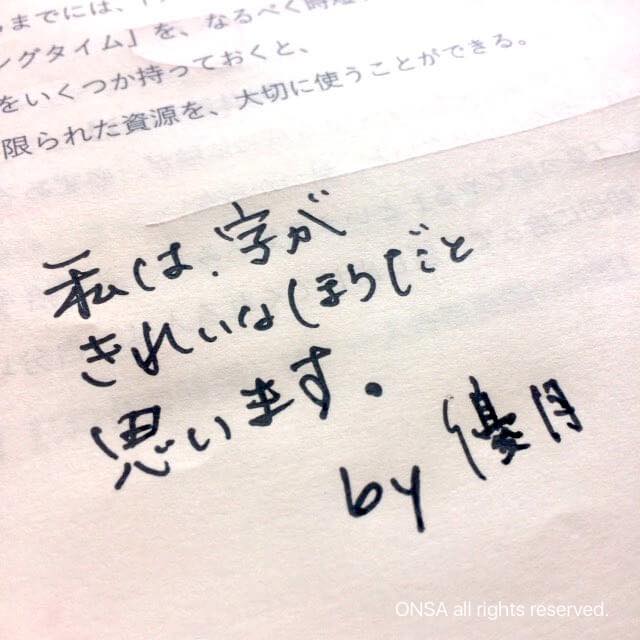 までには、
ングタイム」を、なるべく時短
をいくつか持っておくと、
限られた資源を、大切に使うことができる。
私は、字が
きれいなほうだと
思います。
by 優月
ONSA all rights reserved.